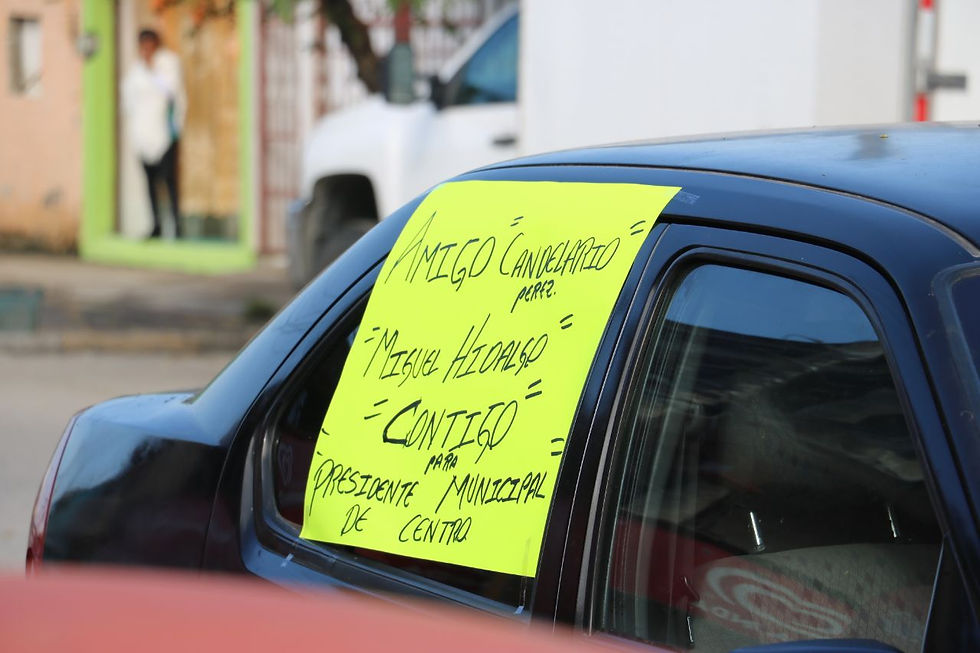 AMIGO "CANDELARIO"
PEREZ.
"MIGUEL HIDALGO"
"CONTIGO"
PARA
"PRESIDENTE MUNICIPAL"
DE CENTRO